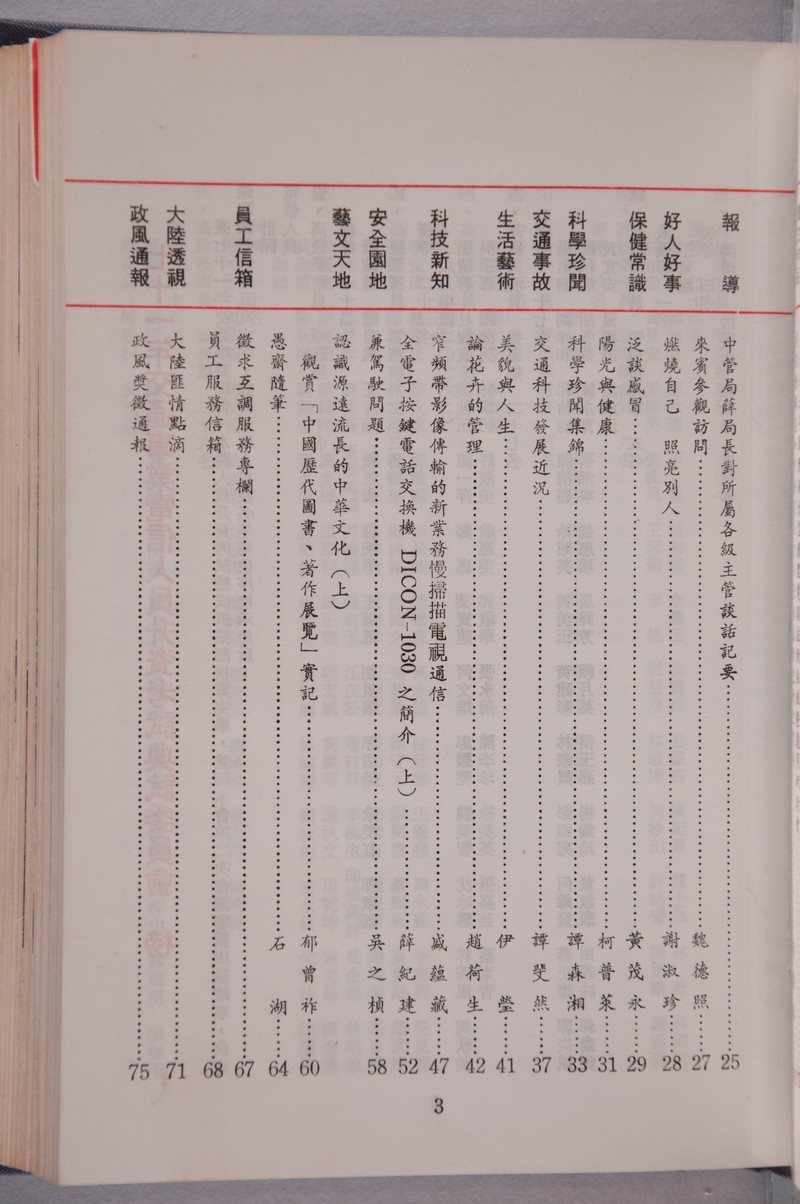 報導
中管局薛局長對所屬各級主管談話記要……25
來賓參觀訪問……魏德照……27
好人好事
燃燒自己 照亮別人……謝淑珍……28
保健常識
泛談感冒……黃茂永……29
陽光與健康……柯普萊……31
科學珍聞
科學珍聞集錦……譚森湘……33
交通事故
交通科技發展近況……譚斐然……37
生活藝術
美貌與人生……伊瑩……41
論花卉的管理……趙荷生……42
科技新知
窄頻帶影像傳輸的新業務慢掃描電視通信……盛蘊藏……47
全電子按鍵電話交換機 DICON-1030 之簡介(上)……薛紀建……52
安全園地
兼駕駛問題……吳之楨……58
藝文天地
認識源遠流長的中華文化(上)
觀賞「中國歷代圖書、著作展覽」實記……郁曾祚……60
愚齋隨筆……石湖……64
員工信箱
徵求互調服務專欄……67
員工服務信箱……68
大陸透視
大陸匪情點滴……71
政風通報
政風獎徵通報……75
3